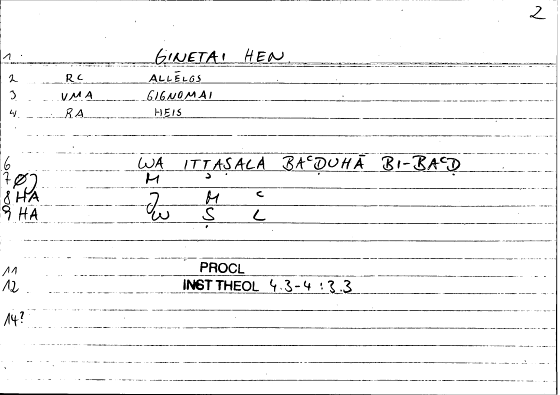 2
1 GINETAI HEN
2 RC ALLĒLOS
3 VMA GIGNOMAI
4 RA HEIS
6 WA ITTAṢALA BAʿḌUHĀ BI-BAʿḌ
7 ØJ M ʾ
8 HA J M ʿ
9 HA W Ṣ L
11 PROCL
12 INST THEOL 4.3-4 : 3.3
14?